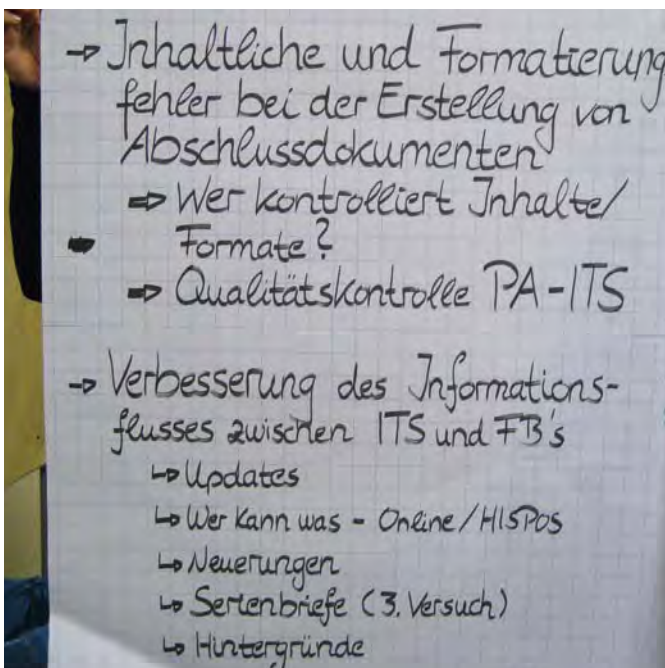 → Inhaltliche und Formatierung
fehler bei der Erstellung von
Abschlussdokumenten
⇒ Wer kontrolliert Inhalte/
Formate?
⇒ Qualitätskontrolle PA-ITS
→ Verbesserung des Informations-
flusses zwischen ITS und FB's
↳ Updates
↳ Wer kann was - Online/HISPOS
↳ Neuerungen
↳ Serienbriefe (3. Versuch)
↳ Hintergründe